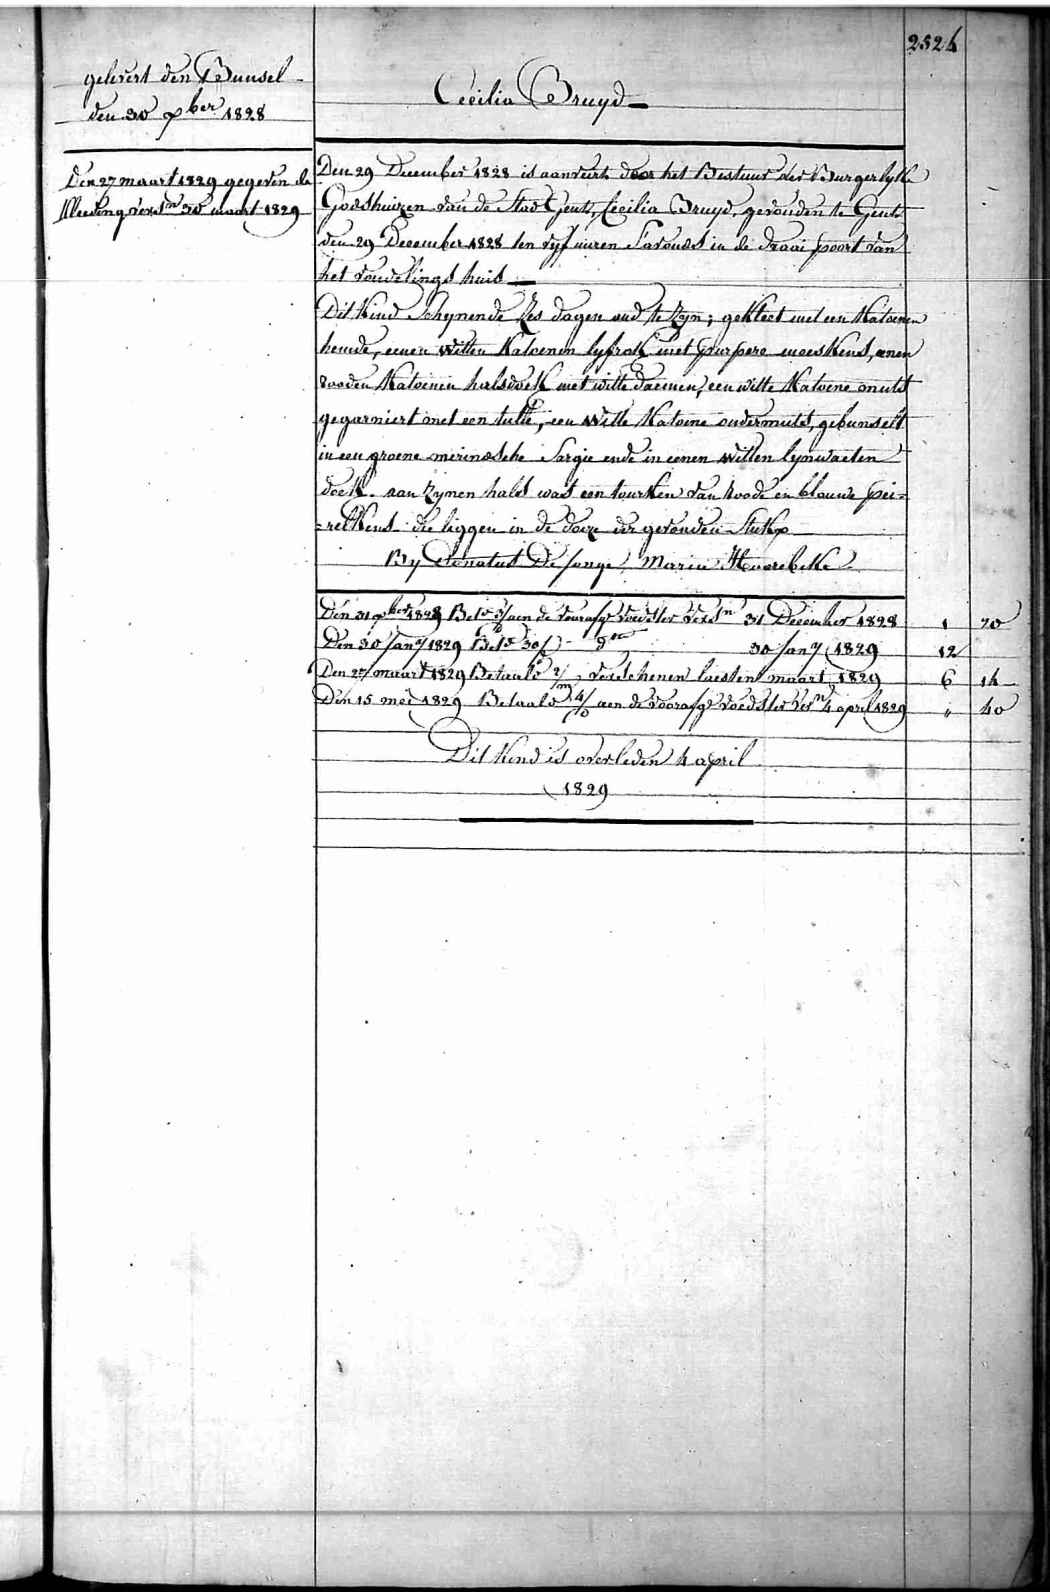 2524
gelevert den Bunsel
den 30 xber 1828
Cecilia Bruyd
Den 27 maart 1829 gegeven de
kleeding versn 30 maart 1829
Den 29 December 1828 is aanveirt door het Bestuur der Burgerlyke
Godshuizen van de Stad Gent, Cecilia Bruyd, gevonden te Gent
den 29 December 1828 ten vyf uuren S'avonds in de draai poort van
het vondelings huis
Dit Kind Schynende Zes dagen oud te Zyn; gekleet met een Katoenen
hemde, eenen witten Katoenen lyfrok met purpere meeskens, eenen
rooden Katoenen halsdoek met witte daemen, een witte Katoene muts
gegarniert met een tulle, een witte Katoene ondermuts, gebunselt
in een groene merinosche Sargie ende in eenen witten lynwaeten
doek. aan Zynen hals was een tourken van roode en blauwe pei=
=relkens die liggen in de doeze der gevonden Stukx
By Donatus De Jonge, Maria Hoorebeke
Den 31 xber 1828 Beto aen de voorafge voedster versn 31 December 1828 1 70
Den 30 Jany 1829 Beto 30/ do 30 Jany 1829 12
Den 27 maart 1829 Betaald 2/m verschenen laesten maart 1829 6 14
Den 15 mei 1829 Betaald 4/ aen de voorafge voedster versn 4 april 1829 " 40
Dit Kind is overleden 4 april
1829